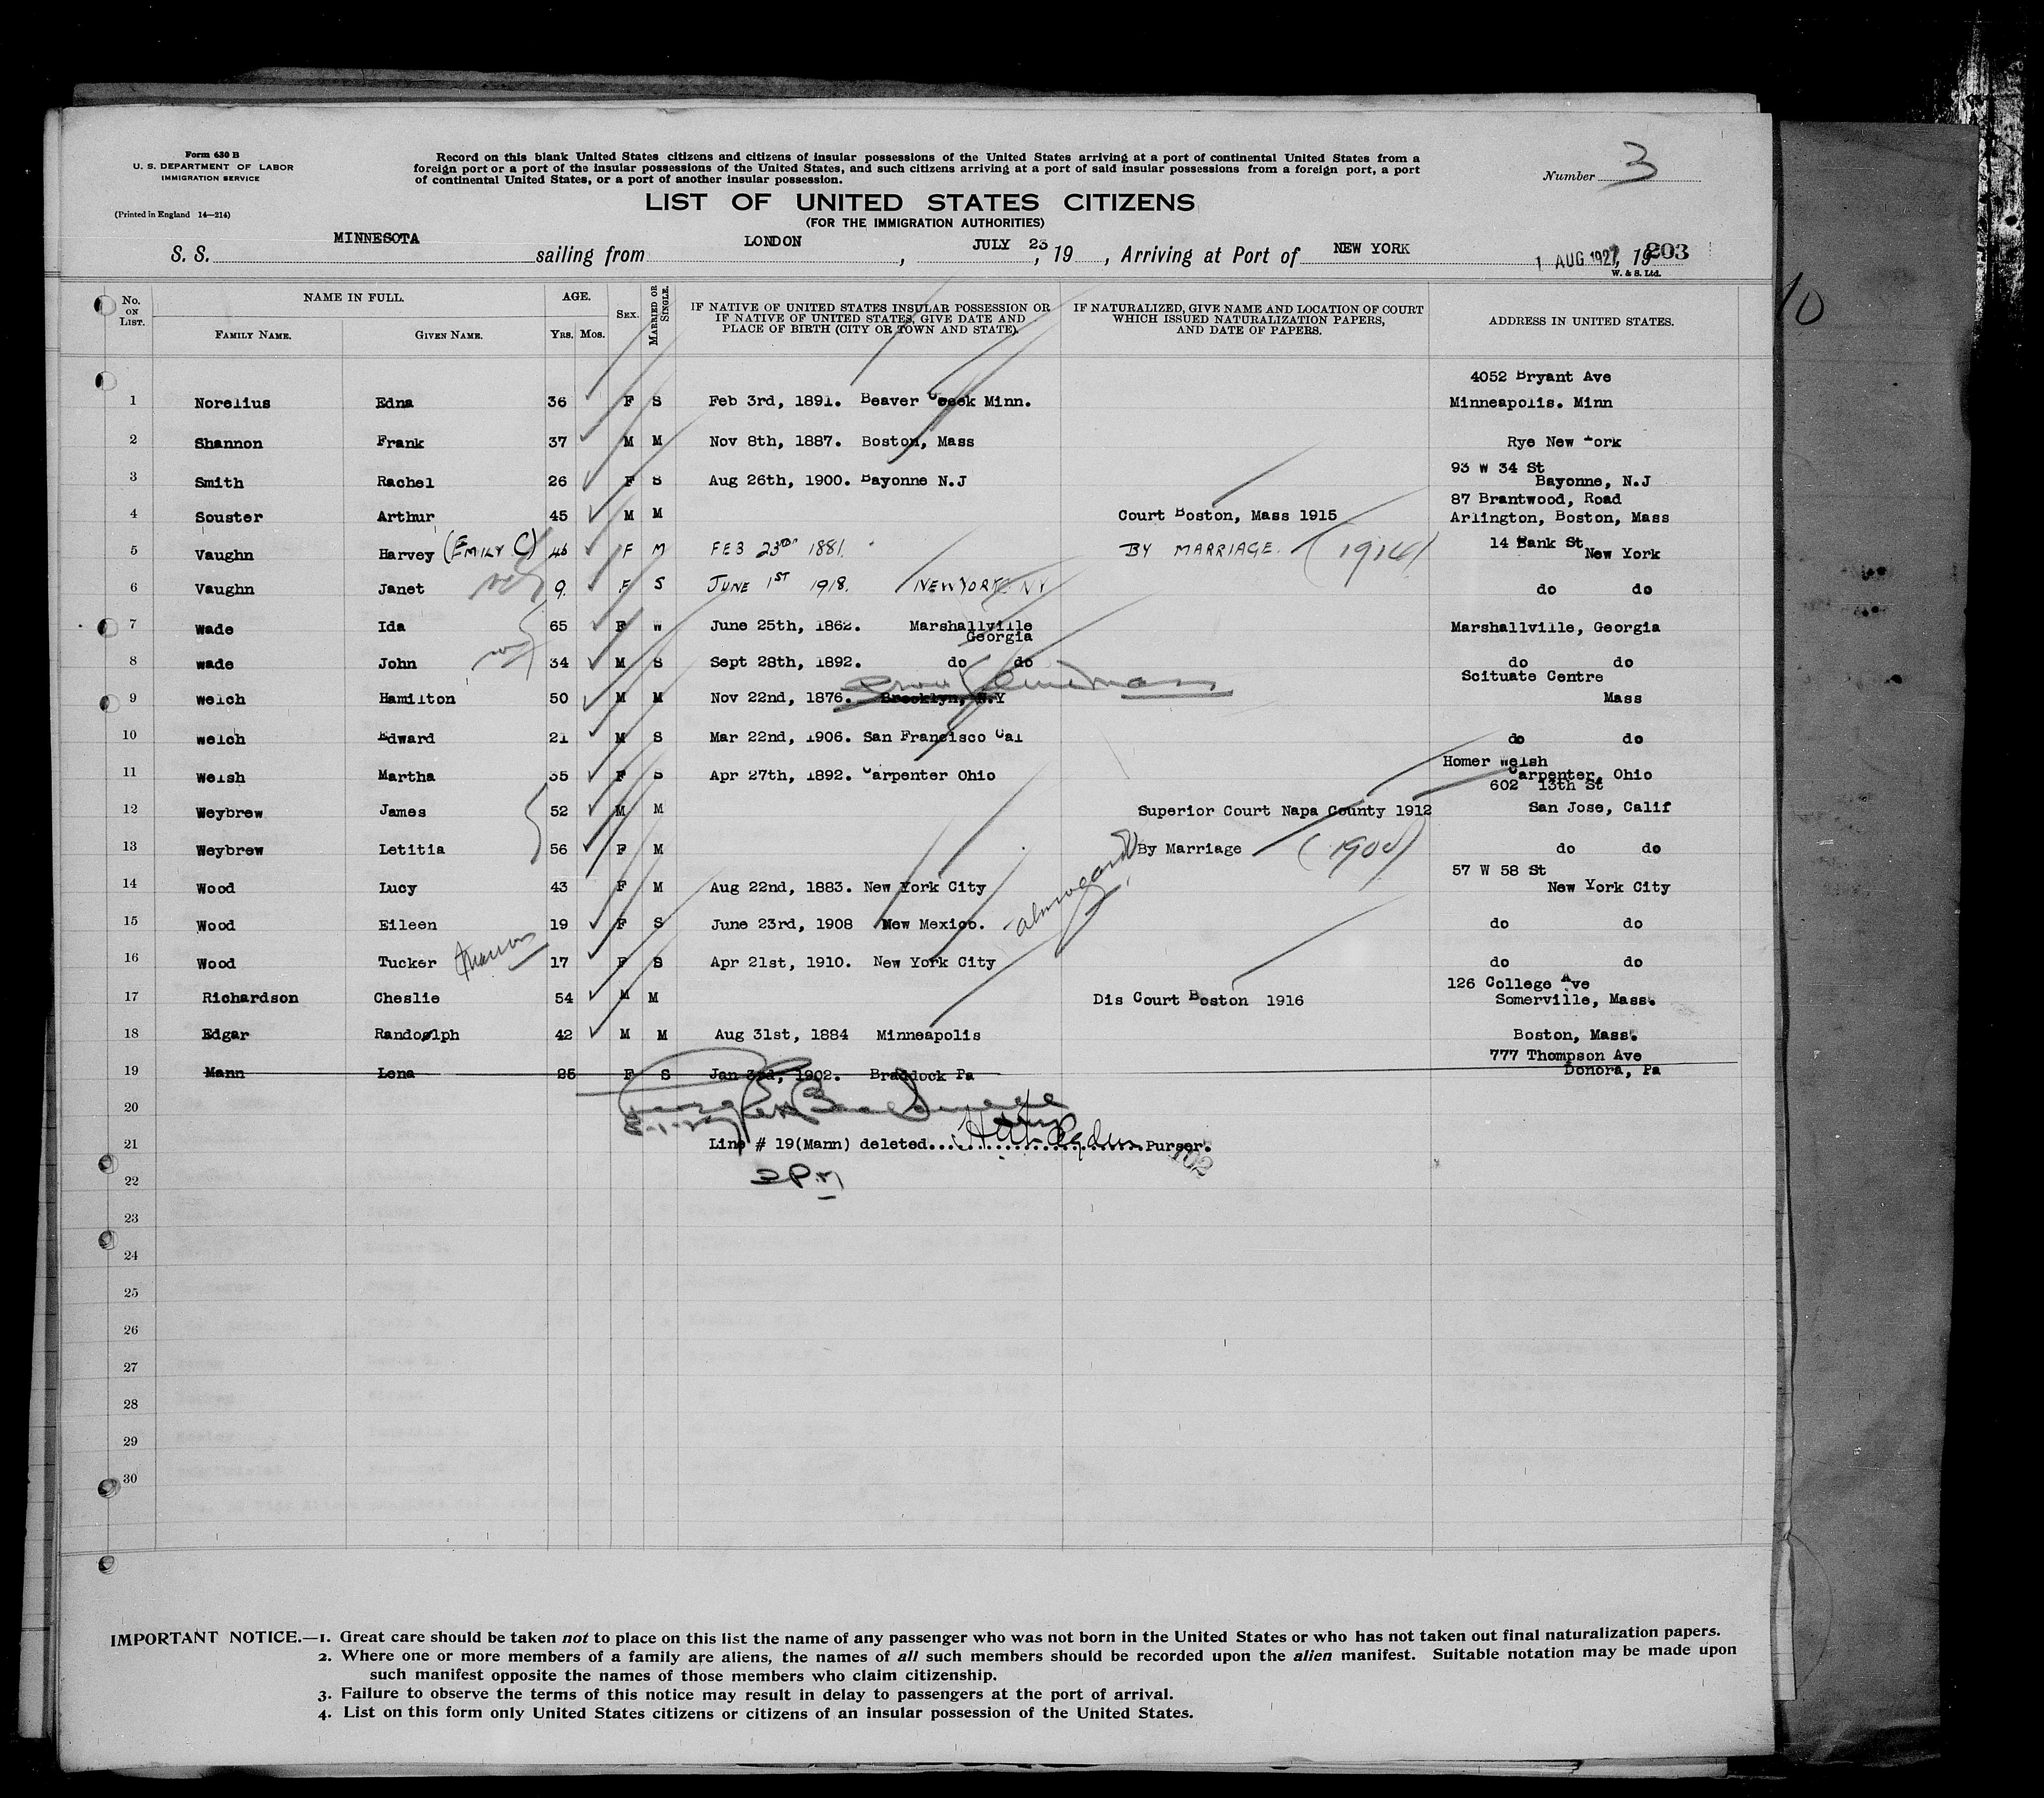 Form 630 B
U. S. DEPARTMENT OF LABOR
IMMIGRATION SERVICE
(Printed in England 14—214)
Record on this blank United States citizens and citizens of insular possessions of the United States arriving at a port of continental United States from a
foreign port or a port of the insular possessions of the United States, and such citizens arriving at a port of said insular possessions from a foreign port, a port
of continental United States, or a port of another insular possession.
Number 3
LIST OF UNITED STATES CITIZENS
(FOR THE IMMIGRATION AUTHORITIES)
S. S. MINNESOTA sailing from LONDON, JULY 23, 19 , Arriving at Port of NEW YORK 1 AUG 1927, 19 203
W. & S. Ltd.
10
No. ON LIST.
NAME IN FULL.
FAMILY NAME.
GIVEN NAME.
AGE.
YRS. MOS.
SEX.
MARRIED OR SINGLE.
IF NATIVE OF UNITED STATES INSULAR POSSESSION OR
IF NATIVE OF UNITED STATES, GIVE DATE AND
PLACE OF BIRTH (CITY OR TOWN AND STATE).
IF NATURALIZED, GIVE NAME AND LOCATION OF COURT
WHICH ISSUED NATURALIZATION PAPERS,
AND DATE OF PAPERS.
ADDRESS IN UNITED STATES.
4052 Bryant Ave
1 Norelius Edna 36 F S Feb 3rd, 1891. Beaver Creek Minn. Minneapolis. Minn
2 Shannon Frank 37 M M Nov 8th, 1887. Boston, Mass Rye New York
93 W 34 St
3 Smith Rachel 26 F S Aug 26th, 1900. Bayonne N.J Bayonne, N.J
87 Brantwood, Road
4 Souster Arthur 45 M M Court Boston, Mass 1915 Arlington, Boston, Mass
14 Bank St
5 Vaughn Harvey (EMILY C) 46 F M FEB 23RD 1881. BY MARRIAGE. (1914) New York
6 Vaughn Janet 9 F S JUNE 1ST 1918. NEW YORK NY do do
7 Wade Ida 65 F W June 25th, 1862. Marshallville Marshallville, Georgia
Georgia
8 wade John 34 M S Sept 28th, 1892. do do do do
Scituate Centre
9 welch Hamilton 50 M M Nov 22nd, 1876. Brooklyn, N.Y Mass
10 welch Edward 21 M S Mar 22nd, 1906. San Francisco Cal do do
Homer Welsh
11 Welsh Martha 35 F S Apr 27th, 1892. Carpenter Ohio Carpenter, Ohio
602 13th St
12 Weybrew James 52 M M Superior Court Napa County 1912 San Jose, Calif
13 Weybrew Letitia 56 F M By Marriage do do
57 W 58 St
14 Wood Lucy 43 F M Aug 22nd, 1883. New York City New York City
15 Wood Eileen 19 F S June 23rd, 1908 New Mexico. do do
16 Wood Tucker 17 F S Apr 21st, 1910. New York City do do
126 College Ave
17 Richardson Cheslie 54 M M Dis Court Boston 1916 Somerville, Mass.
18 Edgar Randolph 42 M M Aug 31st, 1884 Minneapolis Boston, Mass.
777 Thompson Ave
19 Mann Lena 25 F S Jan 3rd, 1902. Braddock Pa Donora, Pa
20
21 Line # 19(Mann) deleted........Purser.
102
2 PM
22
23
24
25
26
27
28
29
30
IMPORTANT NOTICE.—1. Great care should be taken not to place on this list the name of any passenger who was not born in the United States or who has not taken out final naturalization papers.
2. Where one or more members of a family are aliens, the names of all such members should be recorded upon the alien manifest. Suitable notation may be made upon
such manifest opposite the names of those members who claim citizenship.
3. Failure to observe the terms of this notice may result in delay to passengers at the port of arrival.
4. List on this form only United States citizens or citizens of an insular possession of the United States.